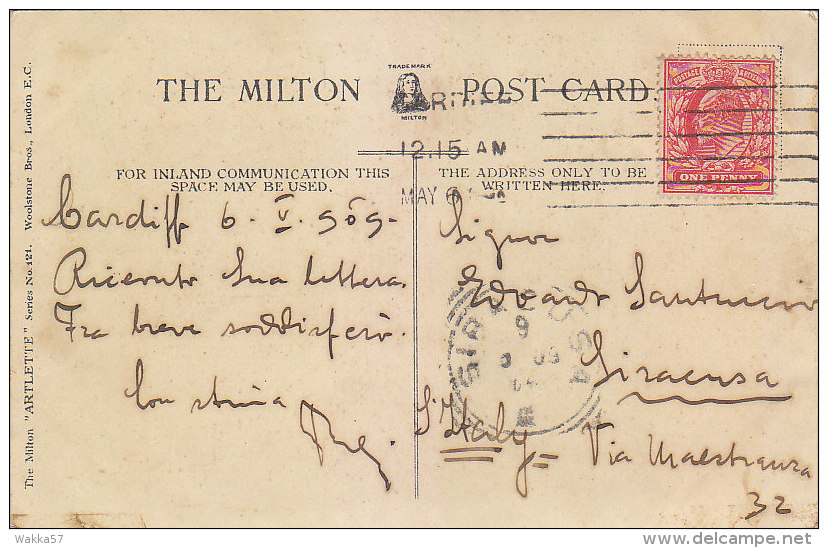 THE MILTON POST CARD.
TRADE MARK
MILTON
12.15 AM
MAY 6
POSTAGE
ONE PENNY
FOR INLAND COMMUNICATION THIS
SPACE MAY BE USED.
THE ADDRESS ONLY TO BE
WRITTEN HERE.
Cardiff 6. V. 909.
Ricevuto Sua lettera.
Fra breve soddisferò.
Con stima
Signor
Edoardo Santuccio
Siracusa
Italy
Via Maestranza
32
SIRACUSA
The Milton "ARTLETTE" Series No. 124. Woolstone Bros., London E.C.
Wakka57
delcampe.net